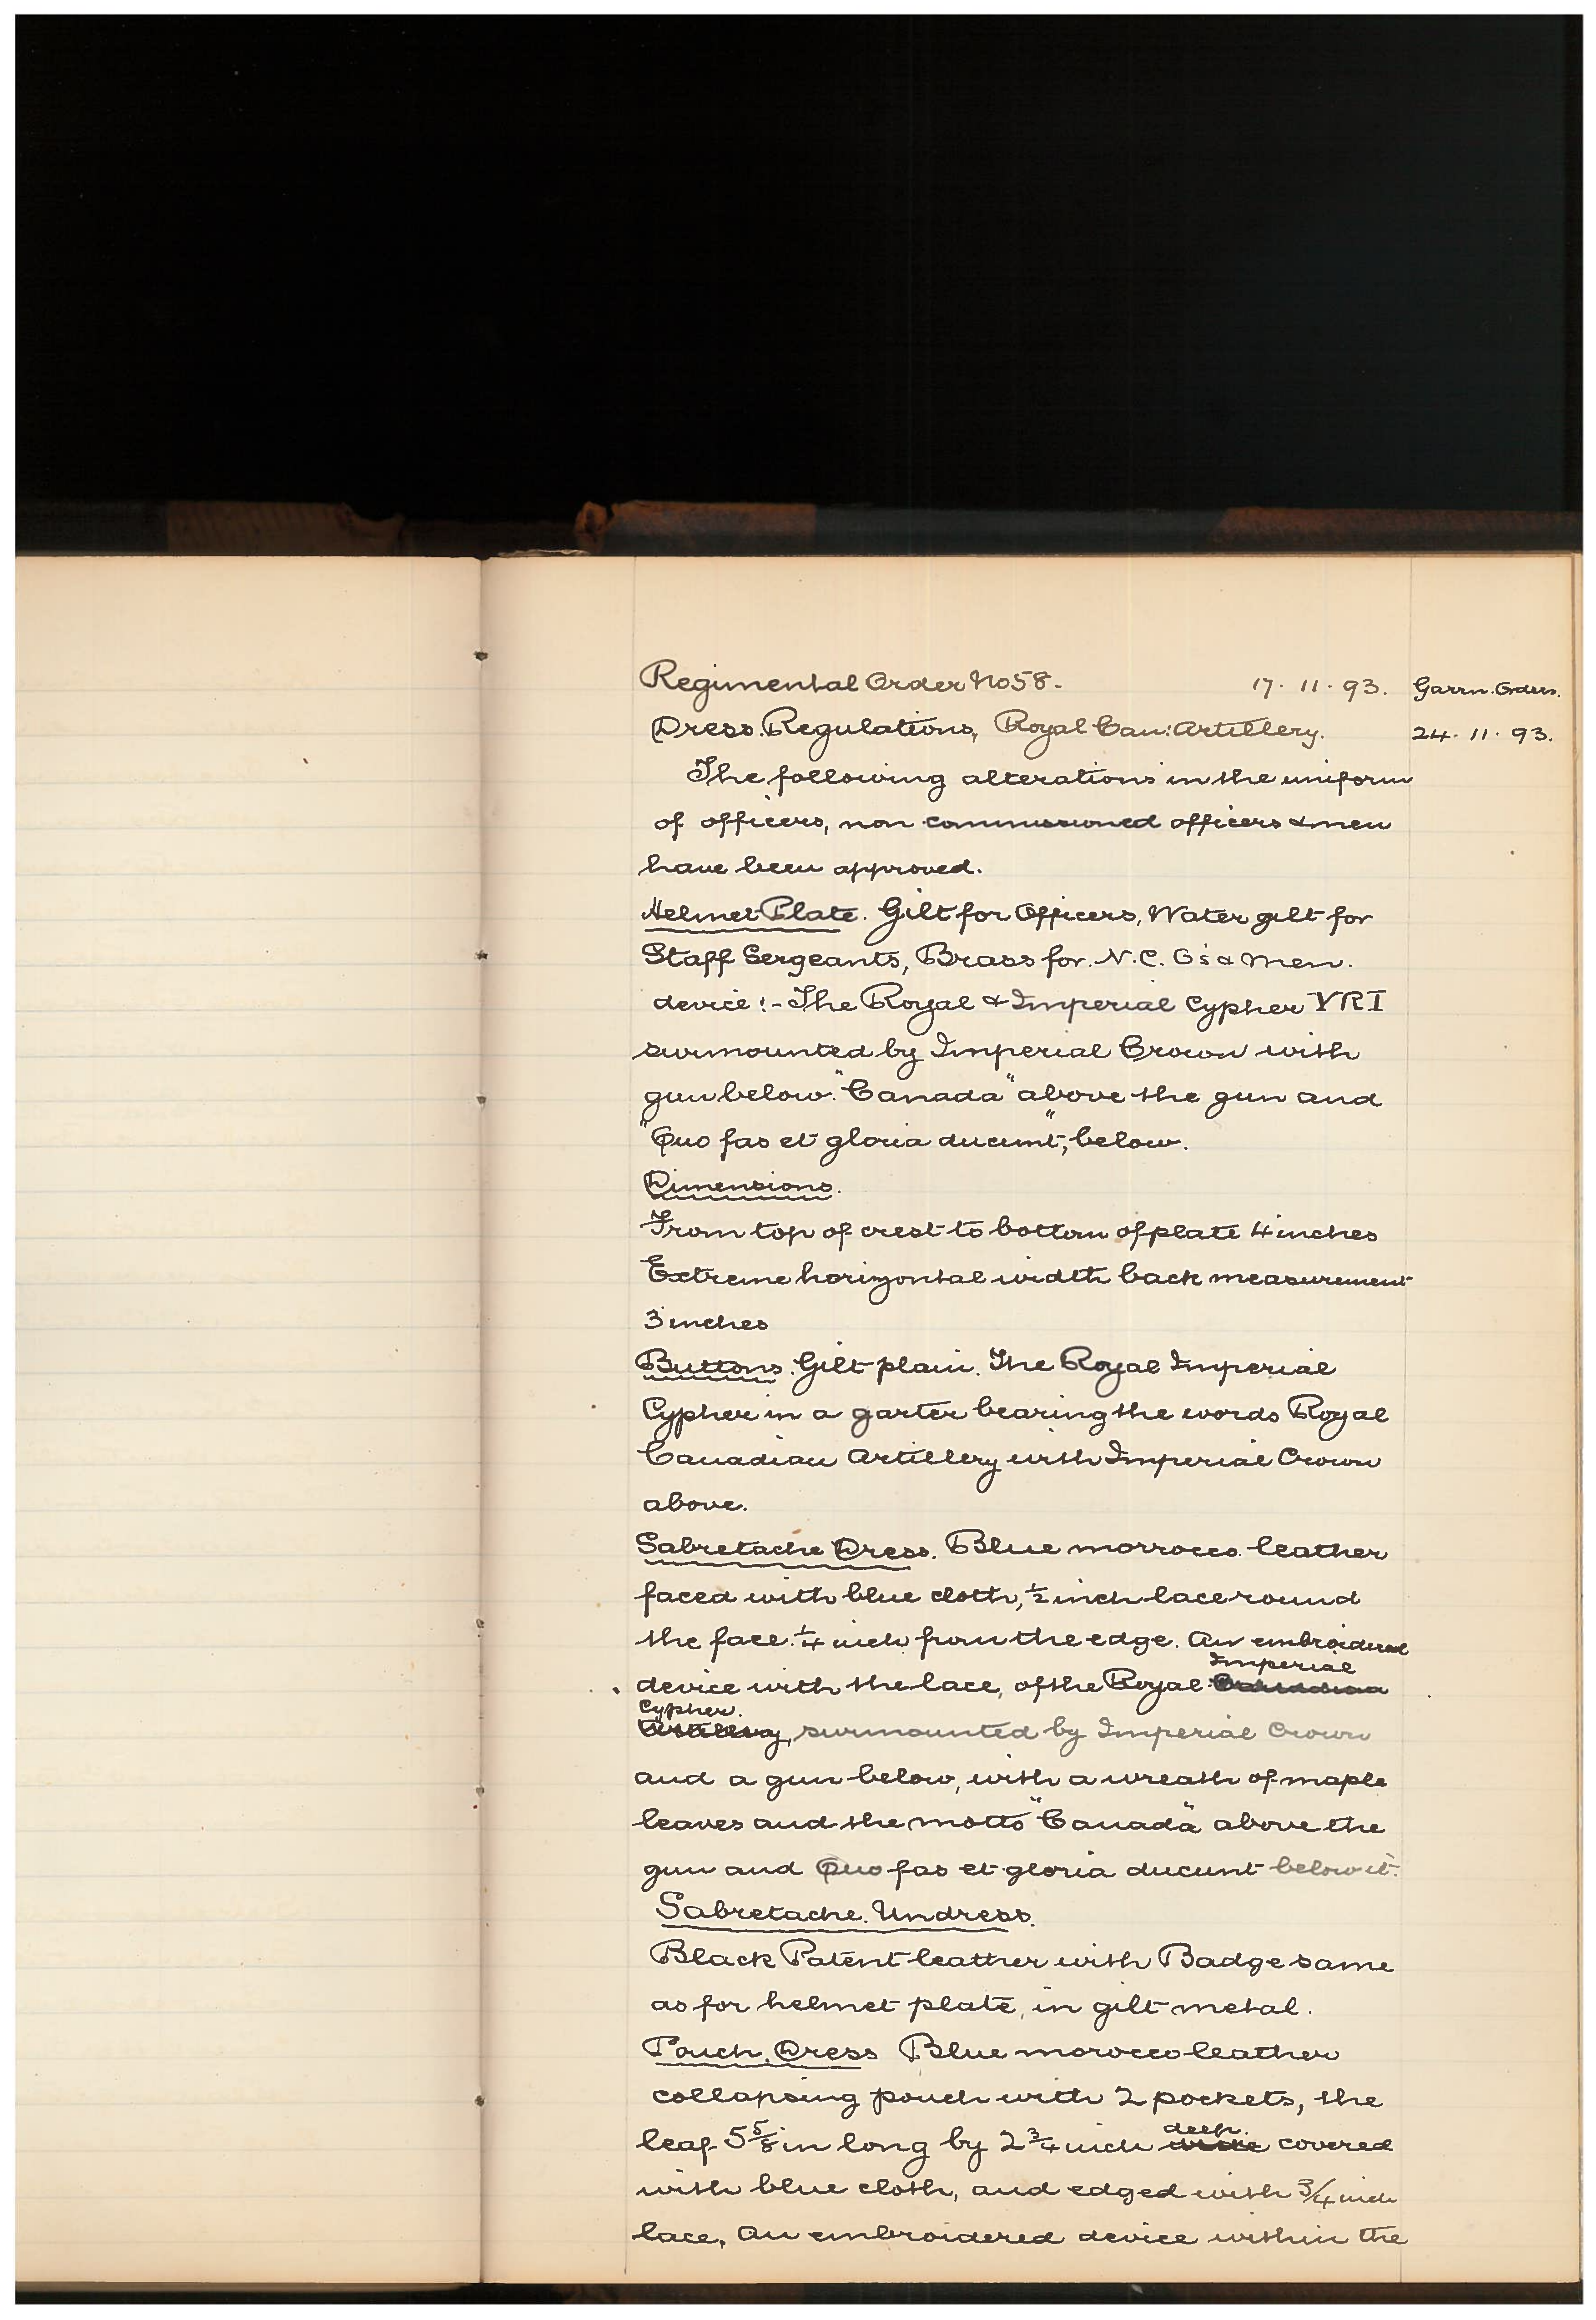 Regimental Order No 58. 17. 11. 93. Garrn. Orders.
Dress. Regulations, Royal Can: Artillery. 24. 11. 93.
The following alterations in the uniform
of officers, non commissioned officers & men
have been approved.
Helmet Plate. Gilt for Officers, Water gilt for
Staff Sergeants, Brass for. N. C. O's & Men.
device :- The Royal & Imperial Cypher VRI
surmounted by Imperial Crown with
gun below. "Canada" above the gun and
"Quo fas et gloria ducunt", below.
Dimensions.
From top of crest to bottom of plate 4 inches
Extreme horizontal width back measurement
3 inches
Buttons. Gilt plain. The Royal Imperial
Cypher in a garter bearing the words Royal
Canadian Artillery with Imperial Crown
above.
Sabretache Dress. Blue morrocco leather
faced with blue cloth, ½ inch lace round
the face. ¼ inch from the edge. An embroidered
Imperial
device with the lace, of the Royal Canadian
Cypher.
Artillery, surmounted by Imperial Crown
and a gun below, with a wreath of maple
leaves and the motto "Canada" above the
gun and Quo fas et gloria ducunt below it.
Sabretache. Undress.
Black Patent leather with Badge same
as for helmet plate, in gilt metal.
Pouch. Dress Blue morocco leather
collapsing pouch with 2 pockets, the
deep.
leaf 5 5/8 in long by 2 ¾ inch wide covered
with blue cloth, and edged with 3/4 inch
lace. An embroidered device within the